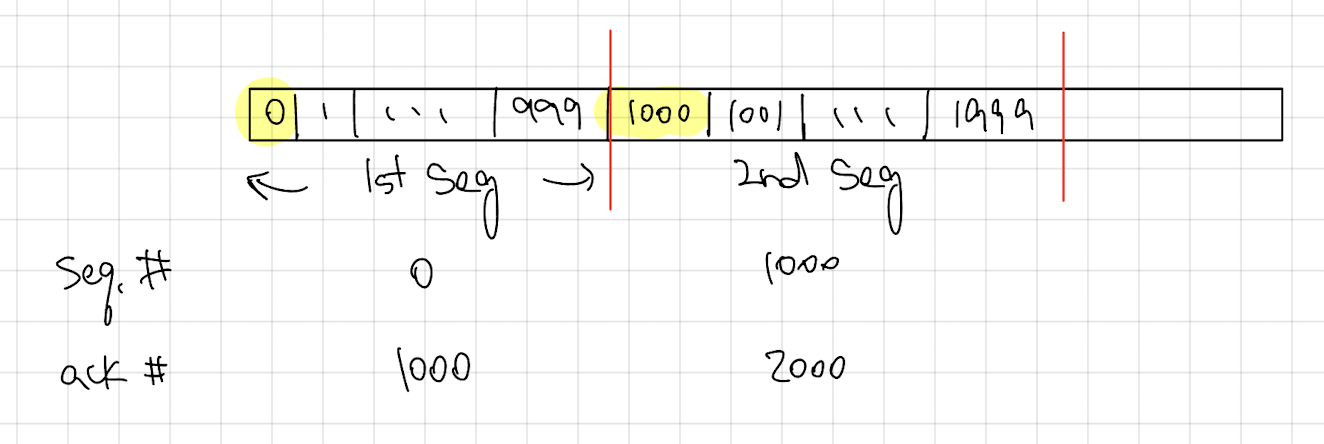 0 1 ... 999 1000 1001 ... 1999
← 1st Seg → 2nd Seg
Seq. # 0 1000
ack # 1000 2000